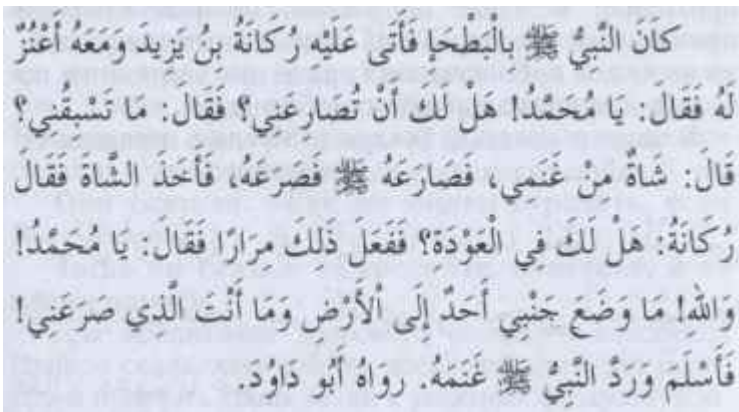 كَانَ النَّبِيُّ ﷺ بِالْبَطْحَإِ فَأَتَى عَلَيْهِ رُكَانَةُ بنُ يَزِيدَ وَمَعَهُ أَعْنُزٌ
لَهُ فَقَالَ: يَا مُحَمَّدُ! هَلْ لَكَ أَنْ تُصَارِعَنِي؟ فَقَالَ: مَا تَسْبِقُنِي؟
قَالَ: شَاةٌ مِنْ غَنَمِي، فَصَارَعَهُ ﷺ فَصَرَعَهُ، فَأَخَذَ الشَّاةَ فَقَالَ
رُكَانَةُ: هَلْ لَكَ فِي الْعَوْدَةِ؟ فَفَعَلَ ذَلِكَ مِرَارًا فَقَالَ: يَا مُحَمَّدُ!
وَاللهِ! مَا وَضَعَ جَنْبِي أَحَدٌ إِلَى اْلأَرْضِ وَمَا أَنْتَ الَّذِي صَرَعَنِي!
فَأَسْلَمَ وَرَدَّ النَّبِيُّ ﷺ غَنَمَهُ. رواهُ أَبُو دَاوُدَ.